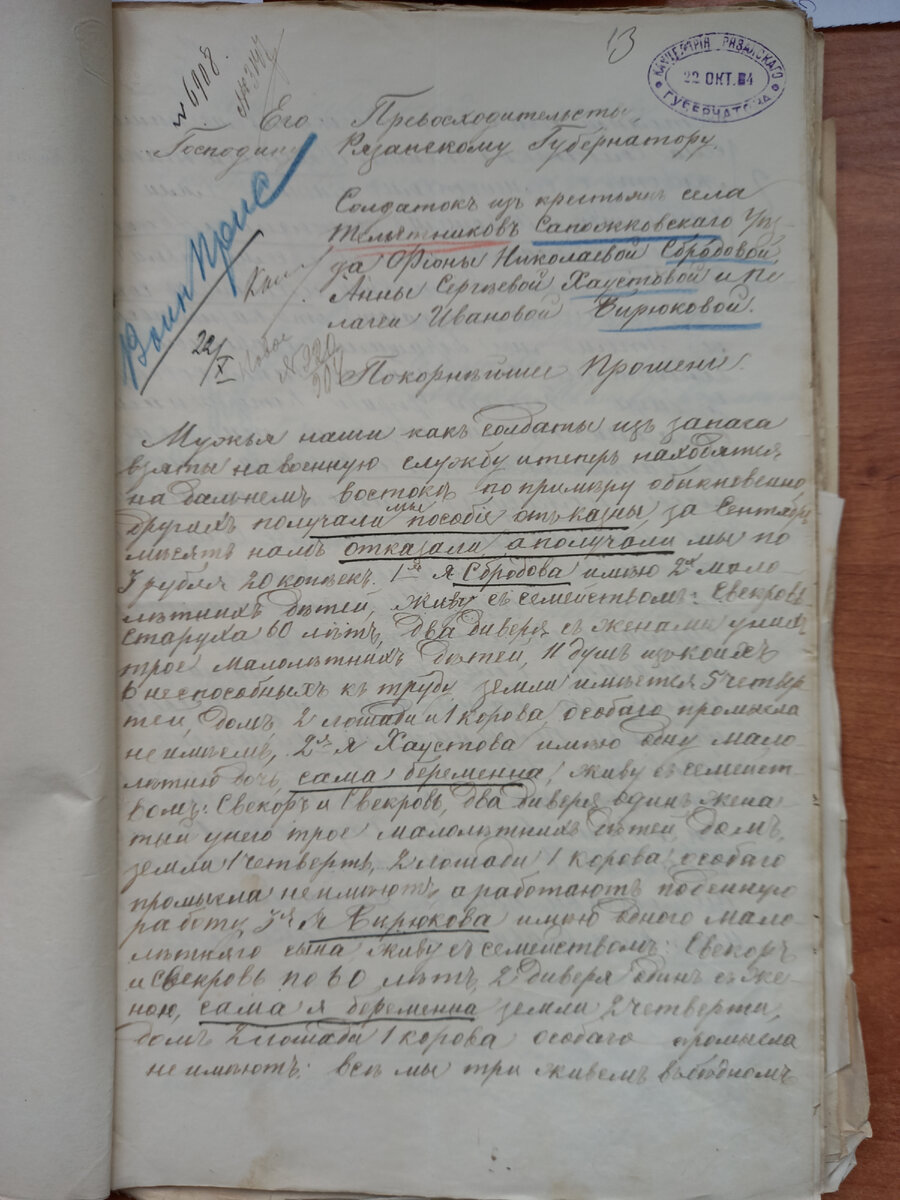 13
КАНЦЕЛЯРІЯ РЯЗАНСКАГО
22 ОКТ. 04
ГУБЕРНАТОРА
№ 6908.
Его Превосходительству
Господину Рязанскому Губернатору.
Солдатокъ изъ крестьянъ села
Телятниковъ Сапожковскаго Уѣз
да Фіоны Николаевой Сбродовой,
Анны Сергѣевой Хаустовой и Пе
лагеи Ивановой Бирюковой.
Воин Прис
22/X
Новое
Покорнѣйшее Прошеніе.
Мужья наши какъ солдаты изъ запаса
взяты на военную службу и теперь находятся
на дальнемъ востокѣ по примѣру обикновенно
другихъ получали мы пособіе отъ казны, за Сентябрь
мѣсяцъ намъ отказали а получали мы по
3 рубля 20 копѣекъ. 1я я Сбродова имѣю 2хъ мало
лѣтнихъ дѣтей, живу съ семействомъ: Свекровь
старуха 60 лѣтъ, два диверя съ женами у нихъ
трое малолѣтнихъ дѣтей, 11 душъ изъ коихъ
6 неспособныхъ къ труду, земли имѣется 5 четвер
тей, домъ 2 лошади и 1 корова, особаго промысла
не имѣемъ, 2я я Хаустова имѣю одну мало
лѣтнию дочь, сама беременна, живу съ семейст
вомъ: Свекоръ и Свекровь, два диверя один жена
тый у него трое малолѣтнихъ дѣтей, домъ,
земли 1 четверть, 2 лошади 1 корова, особаго
промысла не имѣютъ, а работаютъ поденную
работу, 3я я Бирюкова имѣю одного мало
лѣтняго сына живу съ семействомъ: Свекоръ
и Свекровь по 60 лѣтъ, 2 диверя один съ же
ною, сама я беременна земли 2 четверти,
домъ 2 лошади 1 корова особаго промысла
не имѣютъ: всѣ мы три живемъ въ бѣдномъ